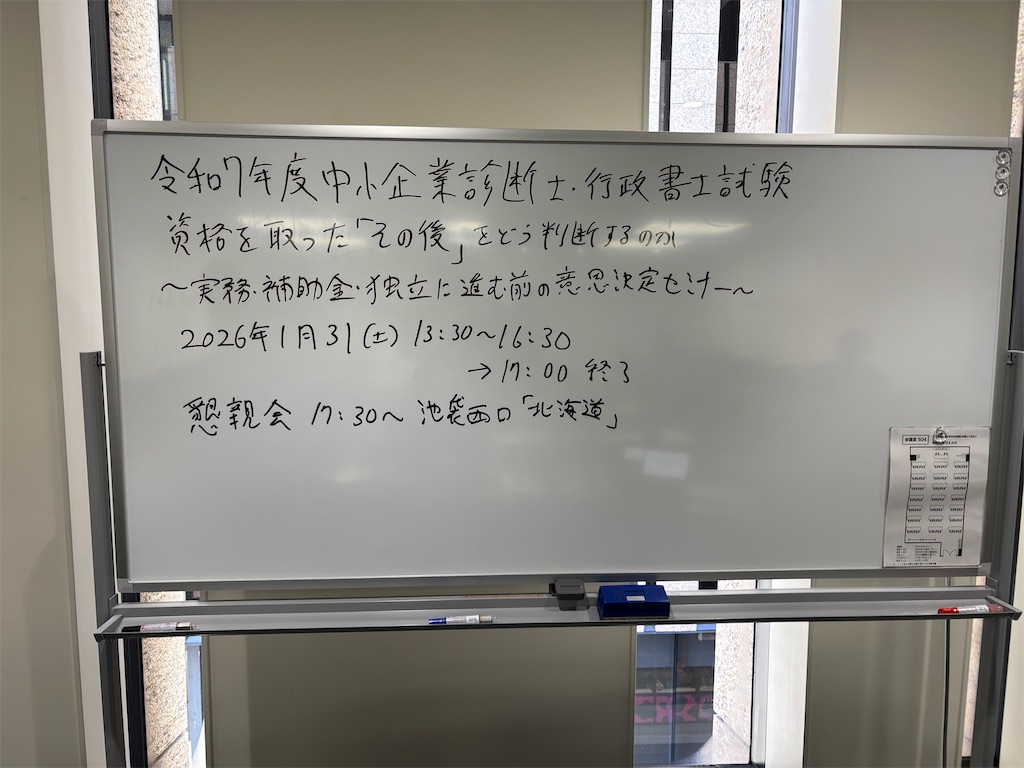 令和7年度中小企業診断士・行政書士試験
資格を取った「その後」をどう判断するのか
～実務・補助金・独立に進む前の意思決定セミナー～
2026年1月31(土) 13:30～16:30
→17:00 終了
懇親会 17:30～ 池袋西口「北海道」
会議室 504